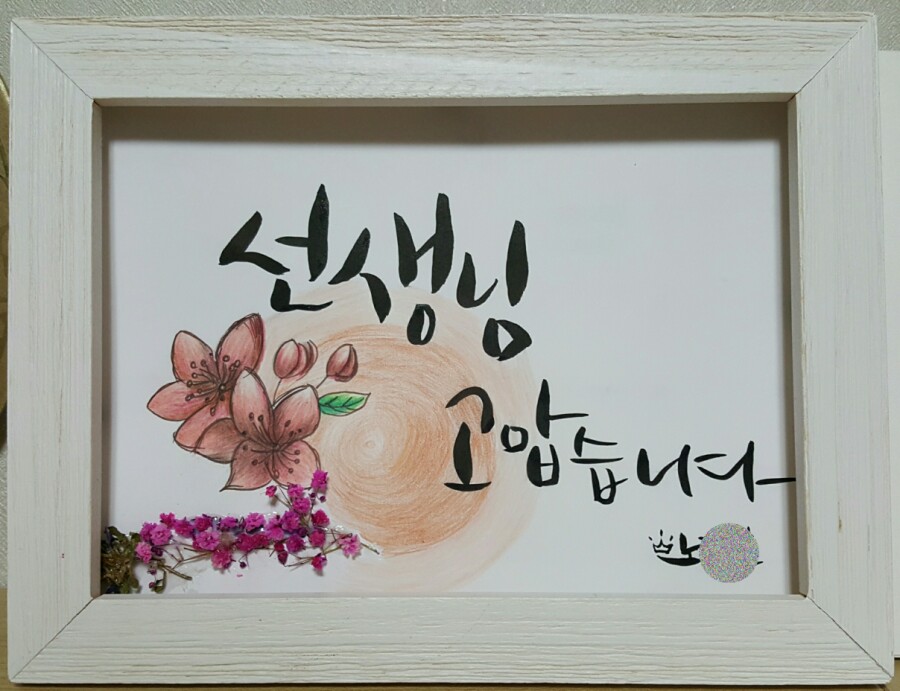 선생님
고맙습니다